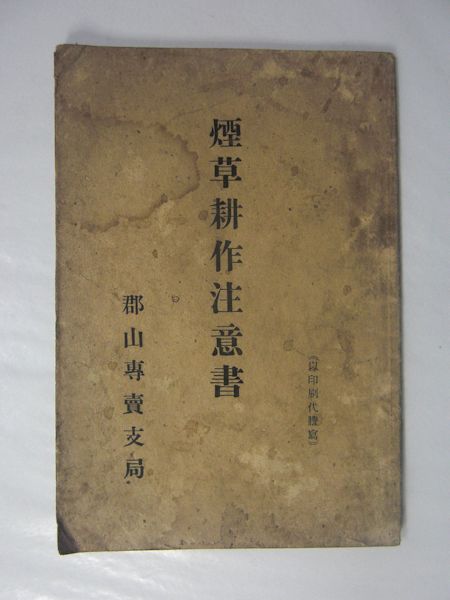 (以印刷代謄寫)
煙草耕作注意書
郡山專賣支局